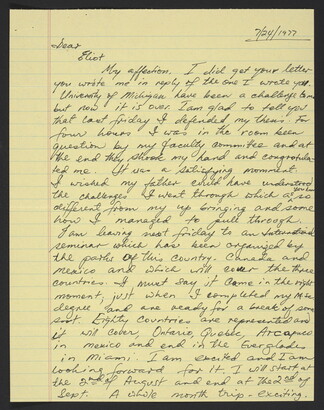 7/24/1977
Dear
Eliot
My affection. I did get your letter
you wrote me in reply of the one I wrote you.
University of Michigan have been a challenge to me
but now it is over. I am glad to tell you
that last friday I defended my thesis. For
four hours I was in the room been
question by my faculty committee and at
the end they shook my hand and congratula-
ted me. It was a satisfying moment.
I wished my father could have understood
the challenges I went through which are so
different from my up bringing and some
how I managed to pull through.
I am leaving next friday to an International
seminar which has been organized by
the parks of this country. Canada and
Mexico and which will cover the three
countries. I must say it came in the right
moment, just when I completed my
degree and are ready for a break of some
sort. Eighty countries are represented and
it will cover, Ontario, Quebec, Acapuco
in mexico and end in the Everglades
in Miami. I am excited and I am
looking forward for it. I will start at
the 2nd of August and end at the 2nd of
Sept. A whole month trip - exciting.